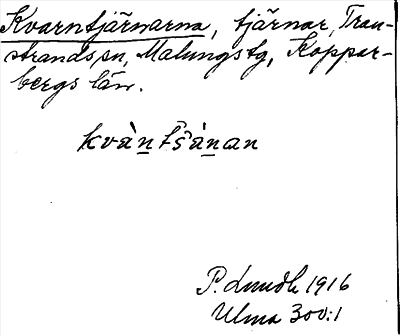 Kvarntjärnarna, tjärnar, Tran-
strands sn, Malungs tg, Koppar-
bergs län.
kvàn̲tš̀àn̲an
P. Lundh 1916
Ulma 300:1